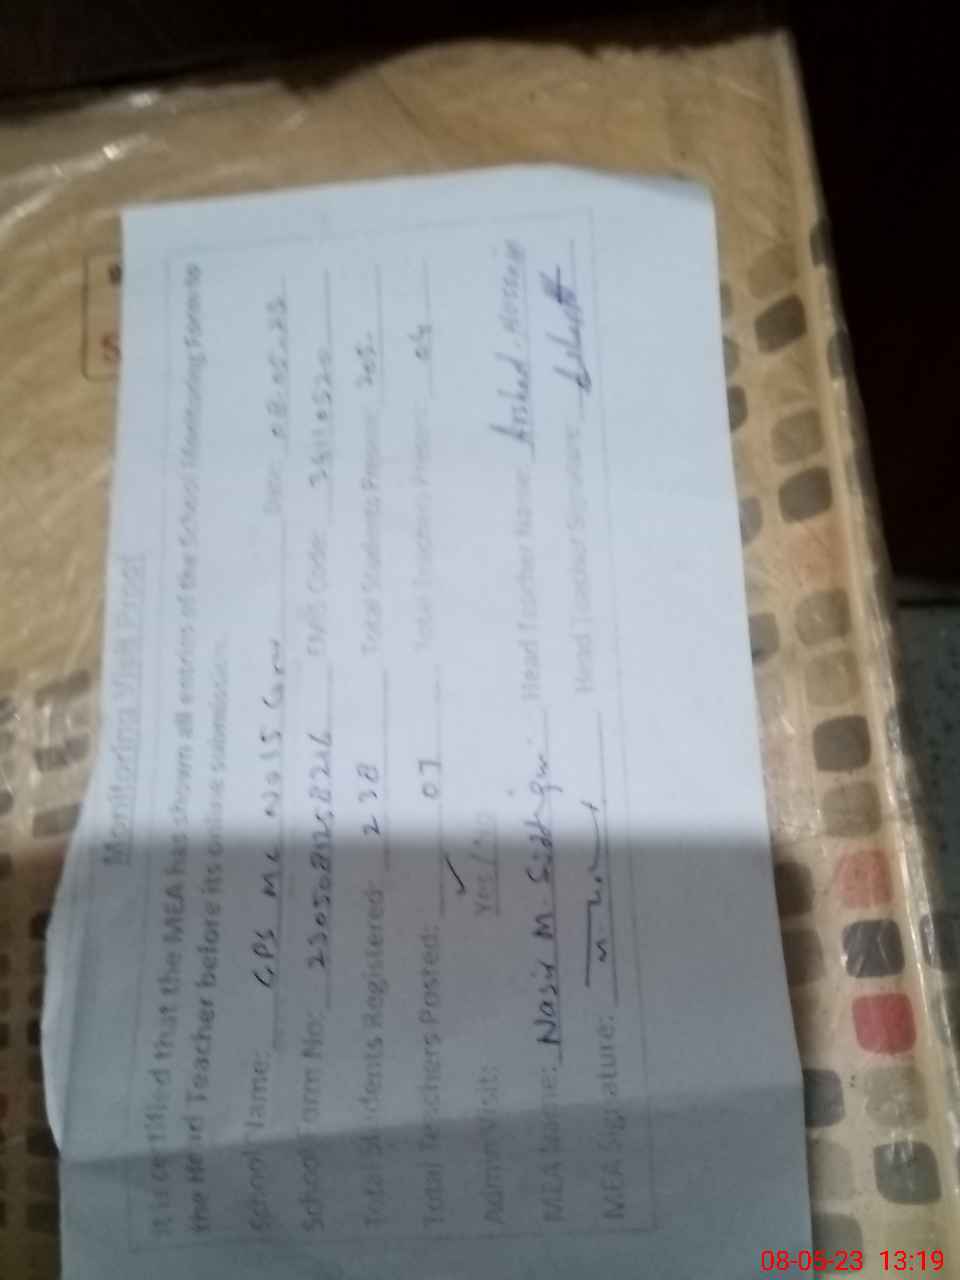 Monitoring Visit Proof
It is certified that the MEA has shown all entries of the School Monitoring Form to
the Head Teacher before its online submission.
School Name: GPS MC No 15 Date: 08.05.23
School Form No: EMIS Code:
Total Students Registered: 238 Total Students Present: 202
Total Teachers Posted: 07 Total Teachers Present: 04
Admin Visit: Yes / No
MEA Name: Nasir M. Siddiqui Head Teacher Name: Arshad Hussain
MEA Signature: Head Teacher Signature:
08-05-23 13:19